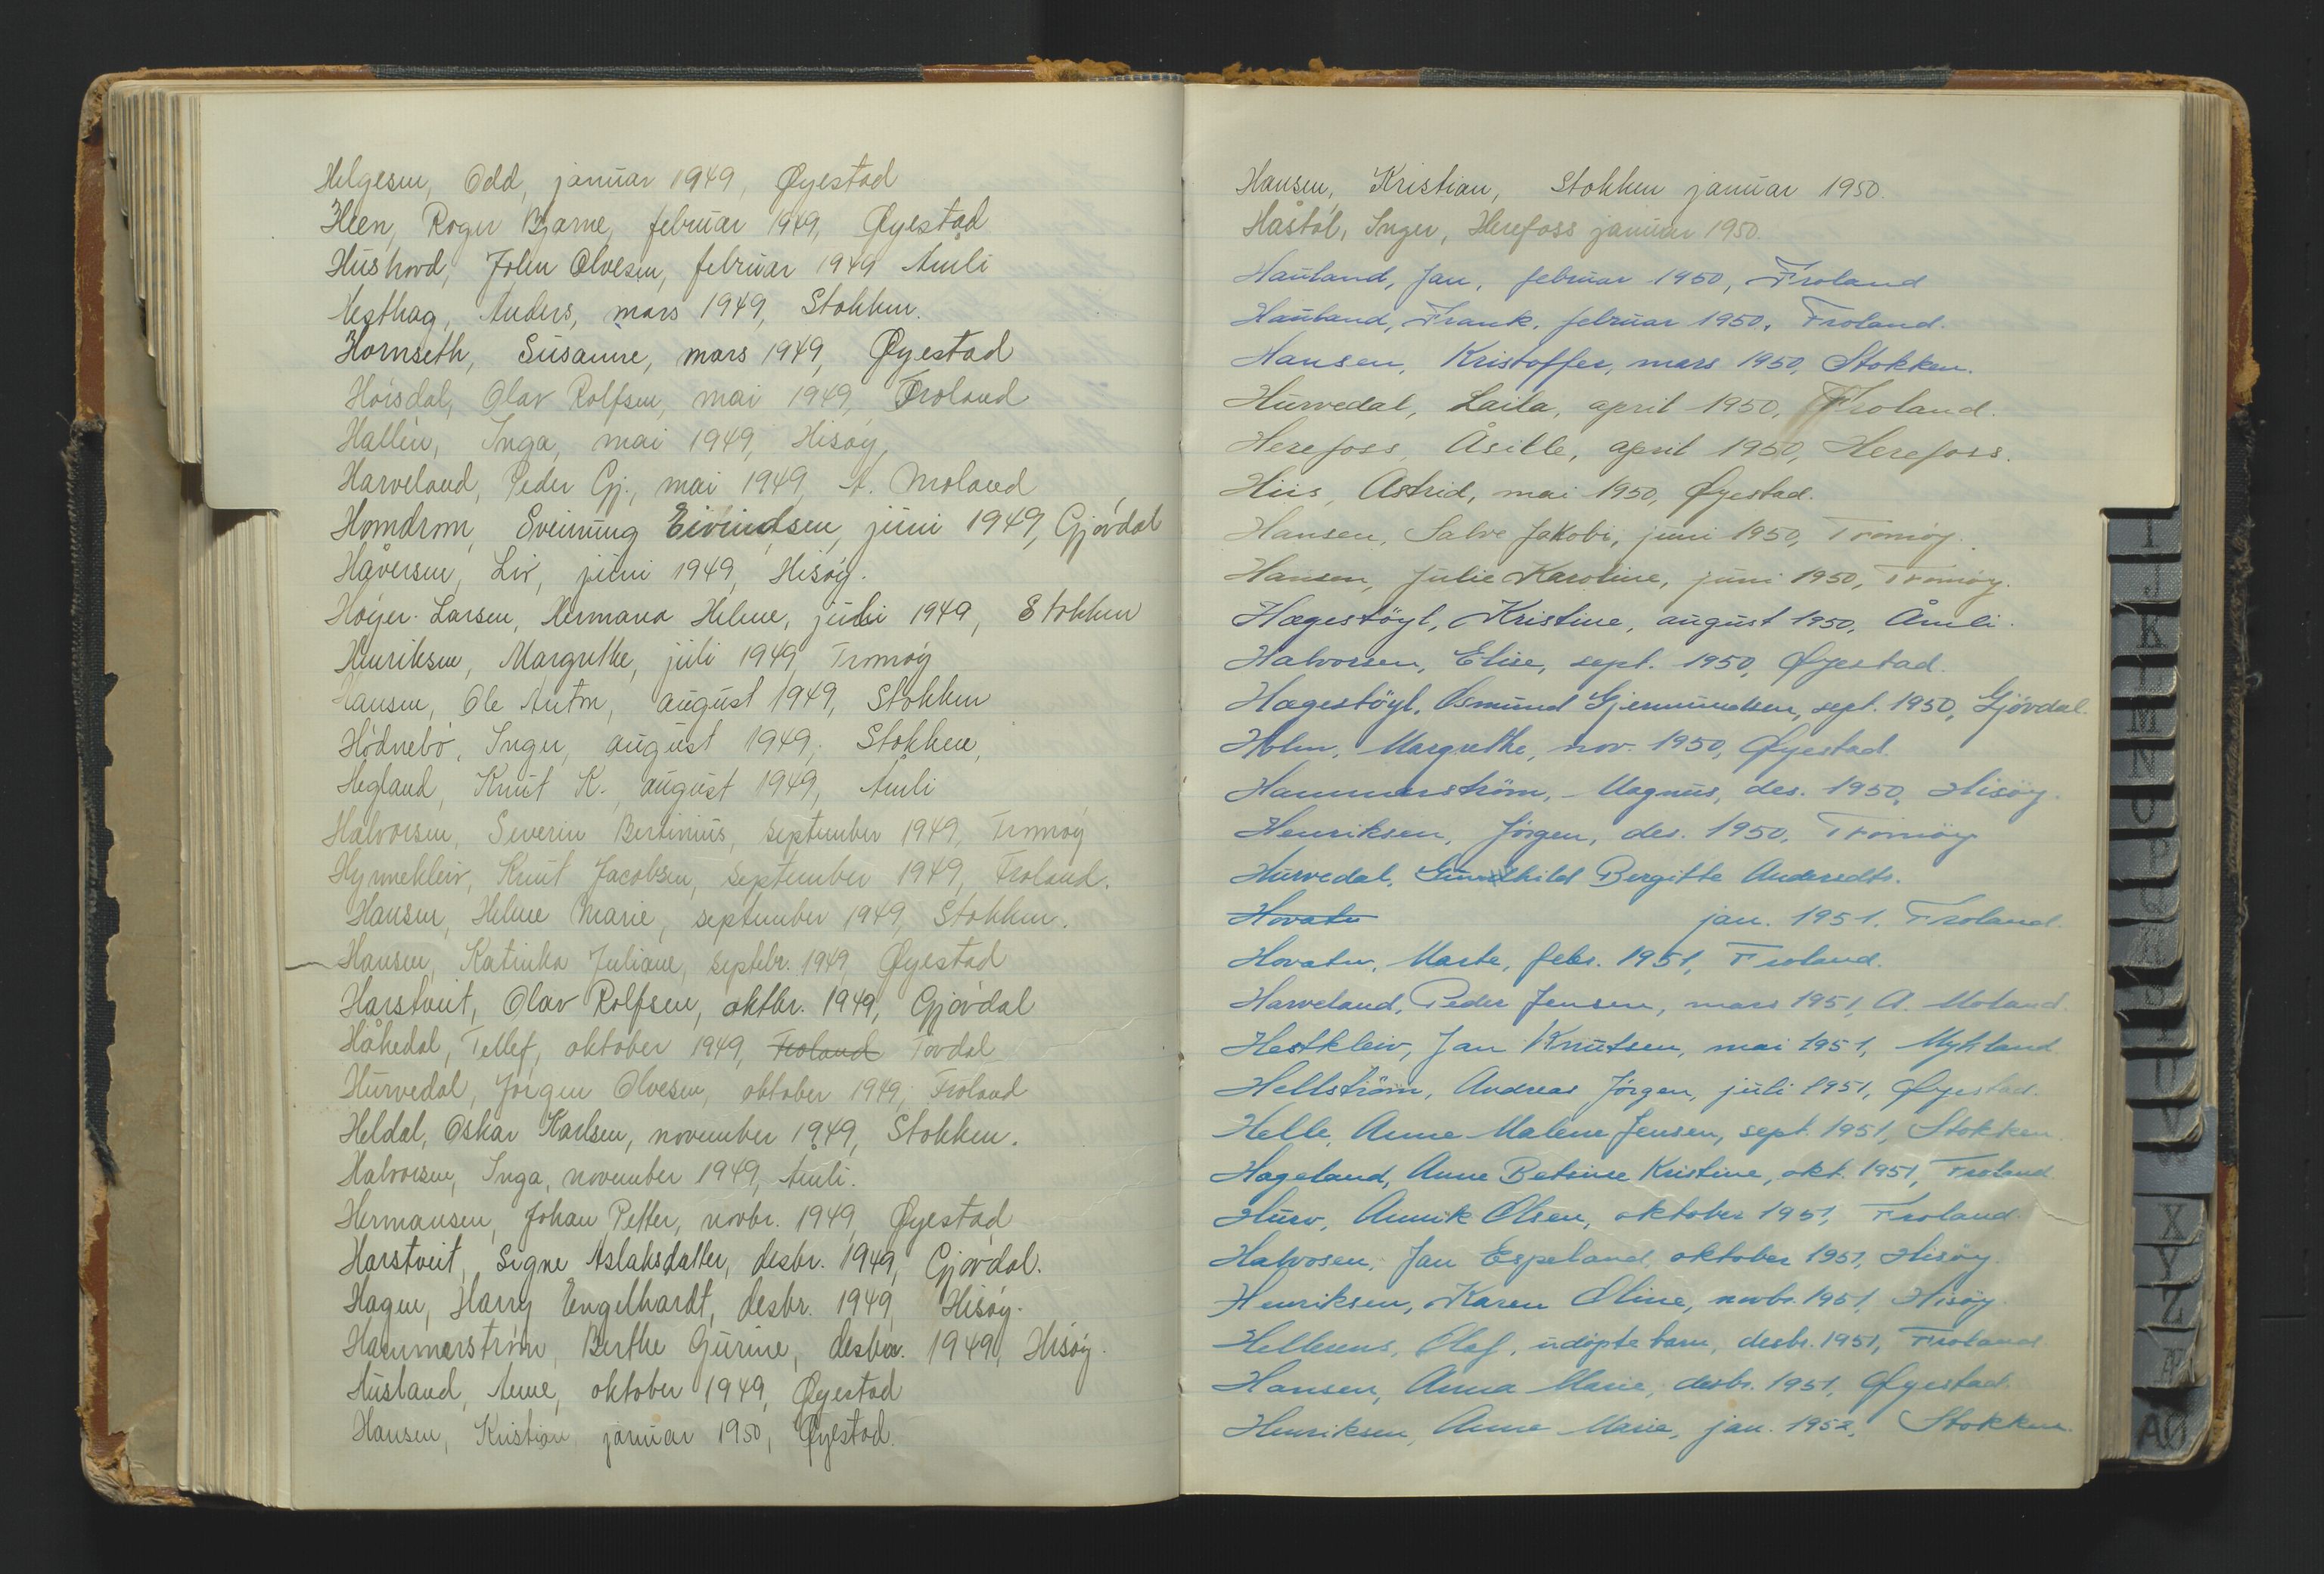 Helgesen, Odd, januar 1949, Øyestad
Heen, Roger Bjarne, februar 1949, Øyestad
Hushovd, John Olvesen, februar 1949 Åmli
Hesthag, Anders, mars 1949, Stokken.
Hornseth, Susanne, mars 1949, Øyestad
Høisdal, Olav Rolfsen, mai 1949, Froland
Hallèn, Inga, mai 1949, Hisøy,
Harveland, Peder Gj., mai 1949, A. Moland
Homdrom, Sveinung Eivindsen, juni 1949, Gjøvdal
Håversen, Liv, juni 1949, Hisøy.
Høyer-Larsen, Hermana Helene, juli 1949, Stokken
Henriksen, Margrethe, juli 1949, Tromøy
Hansen, Ole Anton, august 1949, Stokken
Hödnebö, Inger, august 1949, Stokken,
Hegland, Knut K., august 1949, Åmli
Halvorsen, Severin Bertinius, september 1949, Tromøy
Hynnekleiv, Knut Jacobsen, september 1949, Froland.
Hansen, Helene Marie, september 1949, Stokken.
Hansen, Katinka Juliane, septbr. 1949 Øyestad
Harstveit, Olav Rolfsen, oktbr. 1949, Gjøvdal
Håkedal, Tellef, oktober 1949, Froland Tovdal
Hurvedal, Jørgen Olvesen, oktober 1949, Froland
Heldal, Oskar Karlsen, november 1949, Stokken.
Halvorsen, Inga, november 1949, Åmli.
Hermansen, Johan Petter, novbr. 1949, Øyestad
Harstveit, Signe Aslaksdatter, desbr. 1949, Gjøvdal.
Hagen, Harry Engelhardt, desbr. 1949, Hisøy.
Hammerstrøm, Berthe Gurine, desbr. 1949, Hisøy.
Husland, Anne, oktober 1949, Øyestad
Hansen, Kristian, januar 1950, Øyestad.
Hansen, Kristian, Stokken januar 1950.
Håstöl, Inger, Herefoss januar 1950.
Hauland, Jan, februar 1950, Froland
Hauland, Frank, februar 1950, Froland.
Hansen, Kristoffer, mars 1950, Stokken.
Hurvedal, Laila, april 1950, Froland.
Herefoss, Åsille, april 1950, Herefoss.
Hiis, Astrid, mai 1950, Øyestad.
Hansen, Salve Jakobi, juni 1950, Tromøy.
Hansen, Julie Karoline, juni 1950, Tromøy.
Hægestöyl, Kristine, august 1950, Åmli.
Halvorsen, Elise, sept. 1950, Øyestad.
Hægestöyl, Osmund Gjermundsen, sept. 1950, Gjövdal.
Holm, Margrethe, nov. 1950, Øyestad.
Hammerström, Magnus, des. 1950, Hisöy.
Henriksen, Jörgen, des. 1950, Tromöy
Hurvedal, Gundhild Bergitte Andersdtr.
Hovatn jan. 1951. Froland.
Hovatn, Marte, febr. 1951, Froland.
Harveland, Peder Jensen, mars 1951, A. Moland.
Hestkleiv, Jan Knutsen, mai 1951, Mykland
Hellström, Andreas Jörgen, juli 1951, Øyestad.
Helle, Anne Malene Jensen, sept. 1951, Stokken.
Hageland, Anne Betsine Kristine, okt. 1951, Froland
Hurv, Annik Olsen, oktober 1951, Froland.
Halvosen, Jan Espeland, oktober 1951, Hisöy.
Henriksen, Karen Oline, novbr. 1951, Hisöy.
Hellesens, Olaf, udöpte barn, desbr. 1951, Froland
Hansen, Anna Marie, desbr. 1951, Øyestad.
Henriksen, Anne Marie, jan. 1952, Stokken.
I
J
K
M
N
O
P
Q
R
S
T
U
V
X
Y
Z
Æ
AÅ